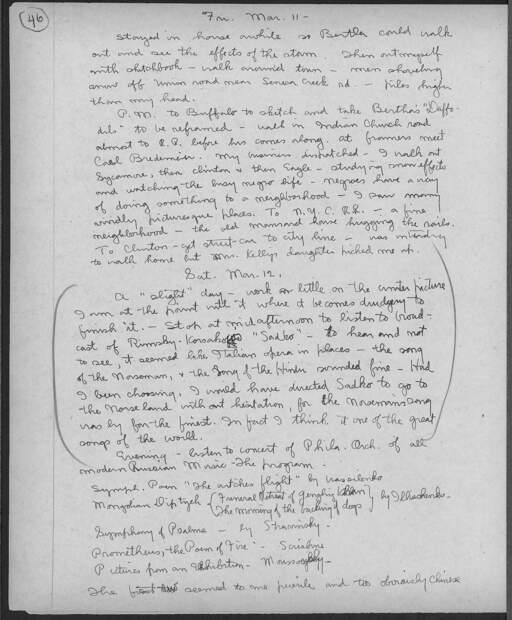 46
Fri. Mar. 11 -
Stayed in house awhile so Bertha could walk
out and see the effects of the storm. Then out myself
with sketchbook - walk around town - men shoveling
snow off Union road near Seneca Creek rd. - piles higher
than my head.
P.M. to Buffalo to sketch and take Bertha's "Daffo-
dils" to be reframed - walk in Indian Church road
almost to R.R. before bus comes along. at framers meet
Carl Bredemeier. My business dispatched - I walk out
Sycamore, then Clinton & then Eagle - studying snow effects
and watching the busy negro life - negroes have a way
of doing something to a neighborhood - I saw many
windly picturesque places. To N.Y.C. R.R. - a fine
neighborhood - the old mansard houses hugging the rails.
To Clinton - get street-car to city line - was intending
to walk home but Mrs. Kelly's daughter picked me up.
Sat. Mar. 12,
A "slight" day - work a little on the winter picture
I am at the point with it where it becomes drudgery to
finish it. - Stop at mid afternoon to listen to broad-
cast of Rimsky-Korsakoff "Sadko" - to hear and not
to see, it seemed like Italian opera in places - the song
of the Norseman, & the Song of the Hindu sounded fine - Had
I been choosing, I would have directed Sadko to go to
the Norse land without hesitation, for the Norseman's song
was by far the finest. In fact I think it one of the great
songs of the world.
Evening - listen to concert of Phila. Orch. of all
modern Russian Music - The program -
Symph. Poem "The witches flight" by Vassilenko
Mongolian Diptych { Funeral Retreat of Genghis Khan
The morning of the barking of dogs } by Illiashenko -
Symphony of Psalms - by Stravinsky -
Prometheus, the Poem of Fire - Scriabine
Pictures from an Exhibition - Moussorgsky -
The first two seemed to me puerile and too obviously Chinese